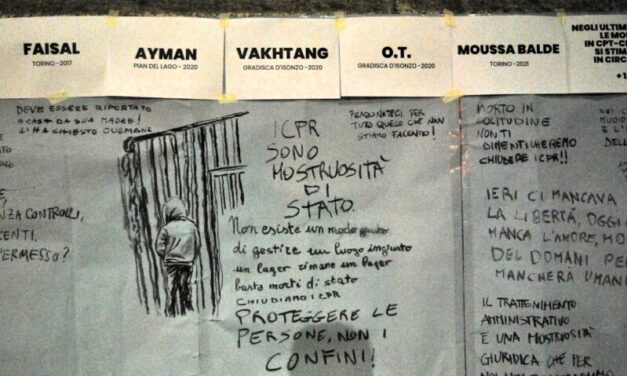 FAISAL
TORINO - 2017
AYMAN
PIAN DEL LAGO - 2020
VAKHTANG
GRADISCA D'ISONZO - 2020
O.T.
GRADISCA D'ISONZO - 2020
MOUSSA BALDE
TORINO - 2021
NEGLI ULTIMI
LE MO
IN CPT-C
SI STIMA
IN CIRC
+1
DEVE ESSERE RIPORTATO
A CASA DA SUA MADRE!
L'HA CHIESTO OUSMANE
NZA CONTROLLI,
ENTI,
PERMESSO?
I CPR
SONO
MOSTRUOSITÀ
DI
STATO
Non esiste un modo giusto
di gestire un luogo ingiusto
un lager rimane un lager
basta morti di stato
CHIUDIAMO I CPR
PROTEGGERE LE
PERSONE, NON I
CONFINI!
PERDONATECI PER
TUTO QUELLO CHE NON
STIAMO FACENDO!
MORTO IN
SOLITUDINE
NON TI
DIMENTICHEREMO
CHIUDERE I CPR!!
IERI CI MANCAVA
LA LIBERTÀ, OGGI
MANCA L'AMORE, MO
DEL DOMANI PE
MANCHERÀ UMANI
IL TRATTENIMENTO
AMMINISTRATIVO
E UNA MOSTRUOSITÀ
GIURIDICA CHE PER